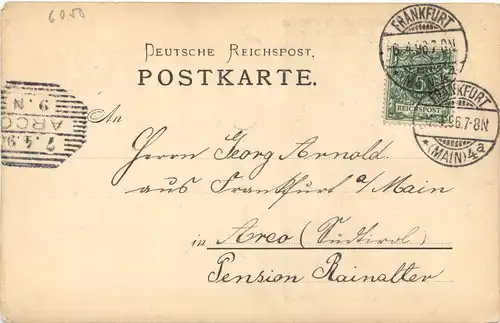 6050
FRANKFURT
6.4.96.7-8N
DEUTSCHE REICHSPOST.
POSTKARTE.
REICHSPOST
FRANKFURT
.96.7-8N
*(MAIN)4a
9.N
ARCO
7.4.9
An
Herrn Georg Arnold.
aus Frankfurt a/Main
in Arco (Südtirol)
Pension Rainalter